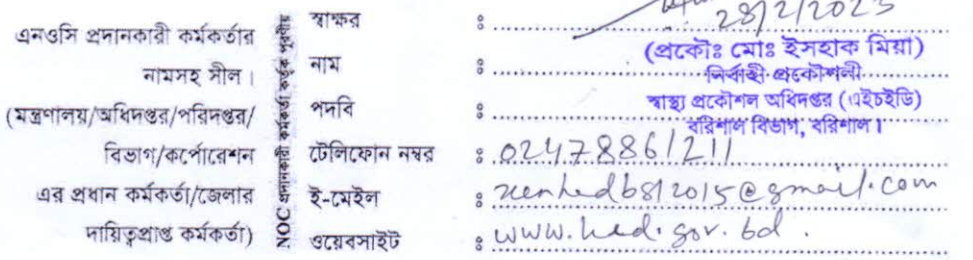 এনওসি প্রদানকারী কর্মকর্তার
নামসহ সীল।
(মন্ত্রণালয়/অধিদপ্তর/পরিদপ্তর/
বিভাগ/কর্পোরেশন
এর প্রধান কর্মকর্তা/জেলার
দায়িত্বপ্রাপ্ত কর্মকর্তা)
NOC প্রদানকারী কর্মকর্তা কর্তৃক পূরণীয়
স্বাক্ষর : 28/2/2023
নাম : (প্রকৌঃ মোঃ ইসহাক মিয়া)
নির্বাহী প্রকৌশলী
পদবি : স্বাস্থ্য প্রকৌশল অধিদপ্তর (এইচইডি)
বরিশাল বিভাগ, বরিশাল।
টেলিফোন নম্বর : 02478861211
ই-মেইল : @gmail.com
ওয়েবসাইট : www.hed.gov.bd.